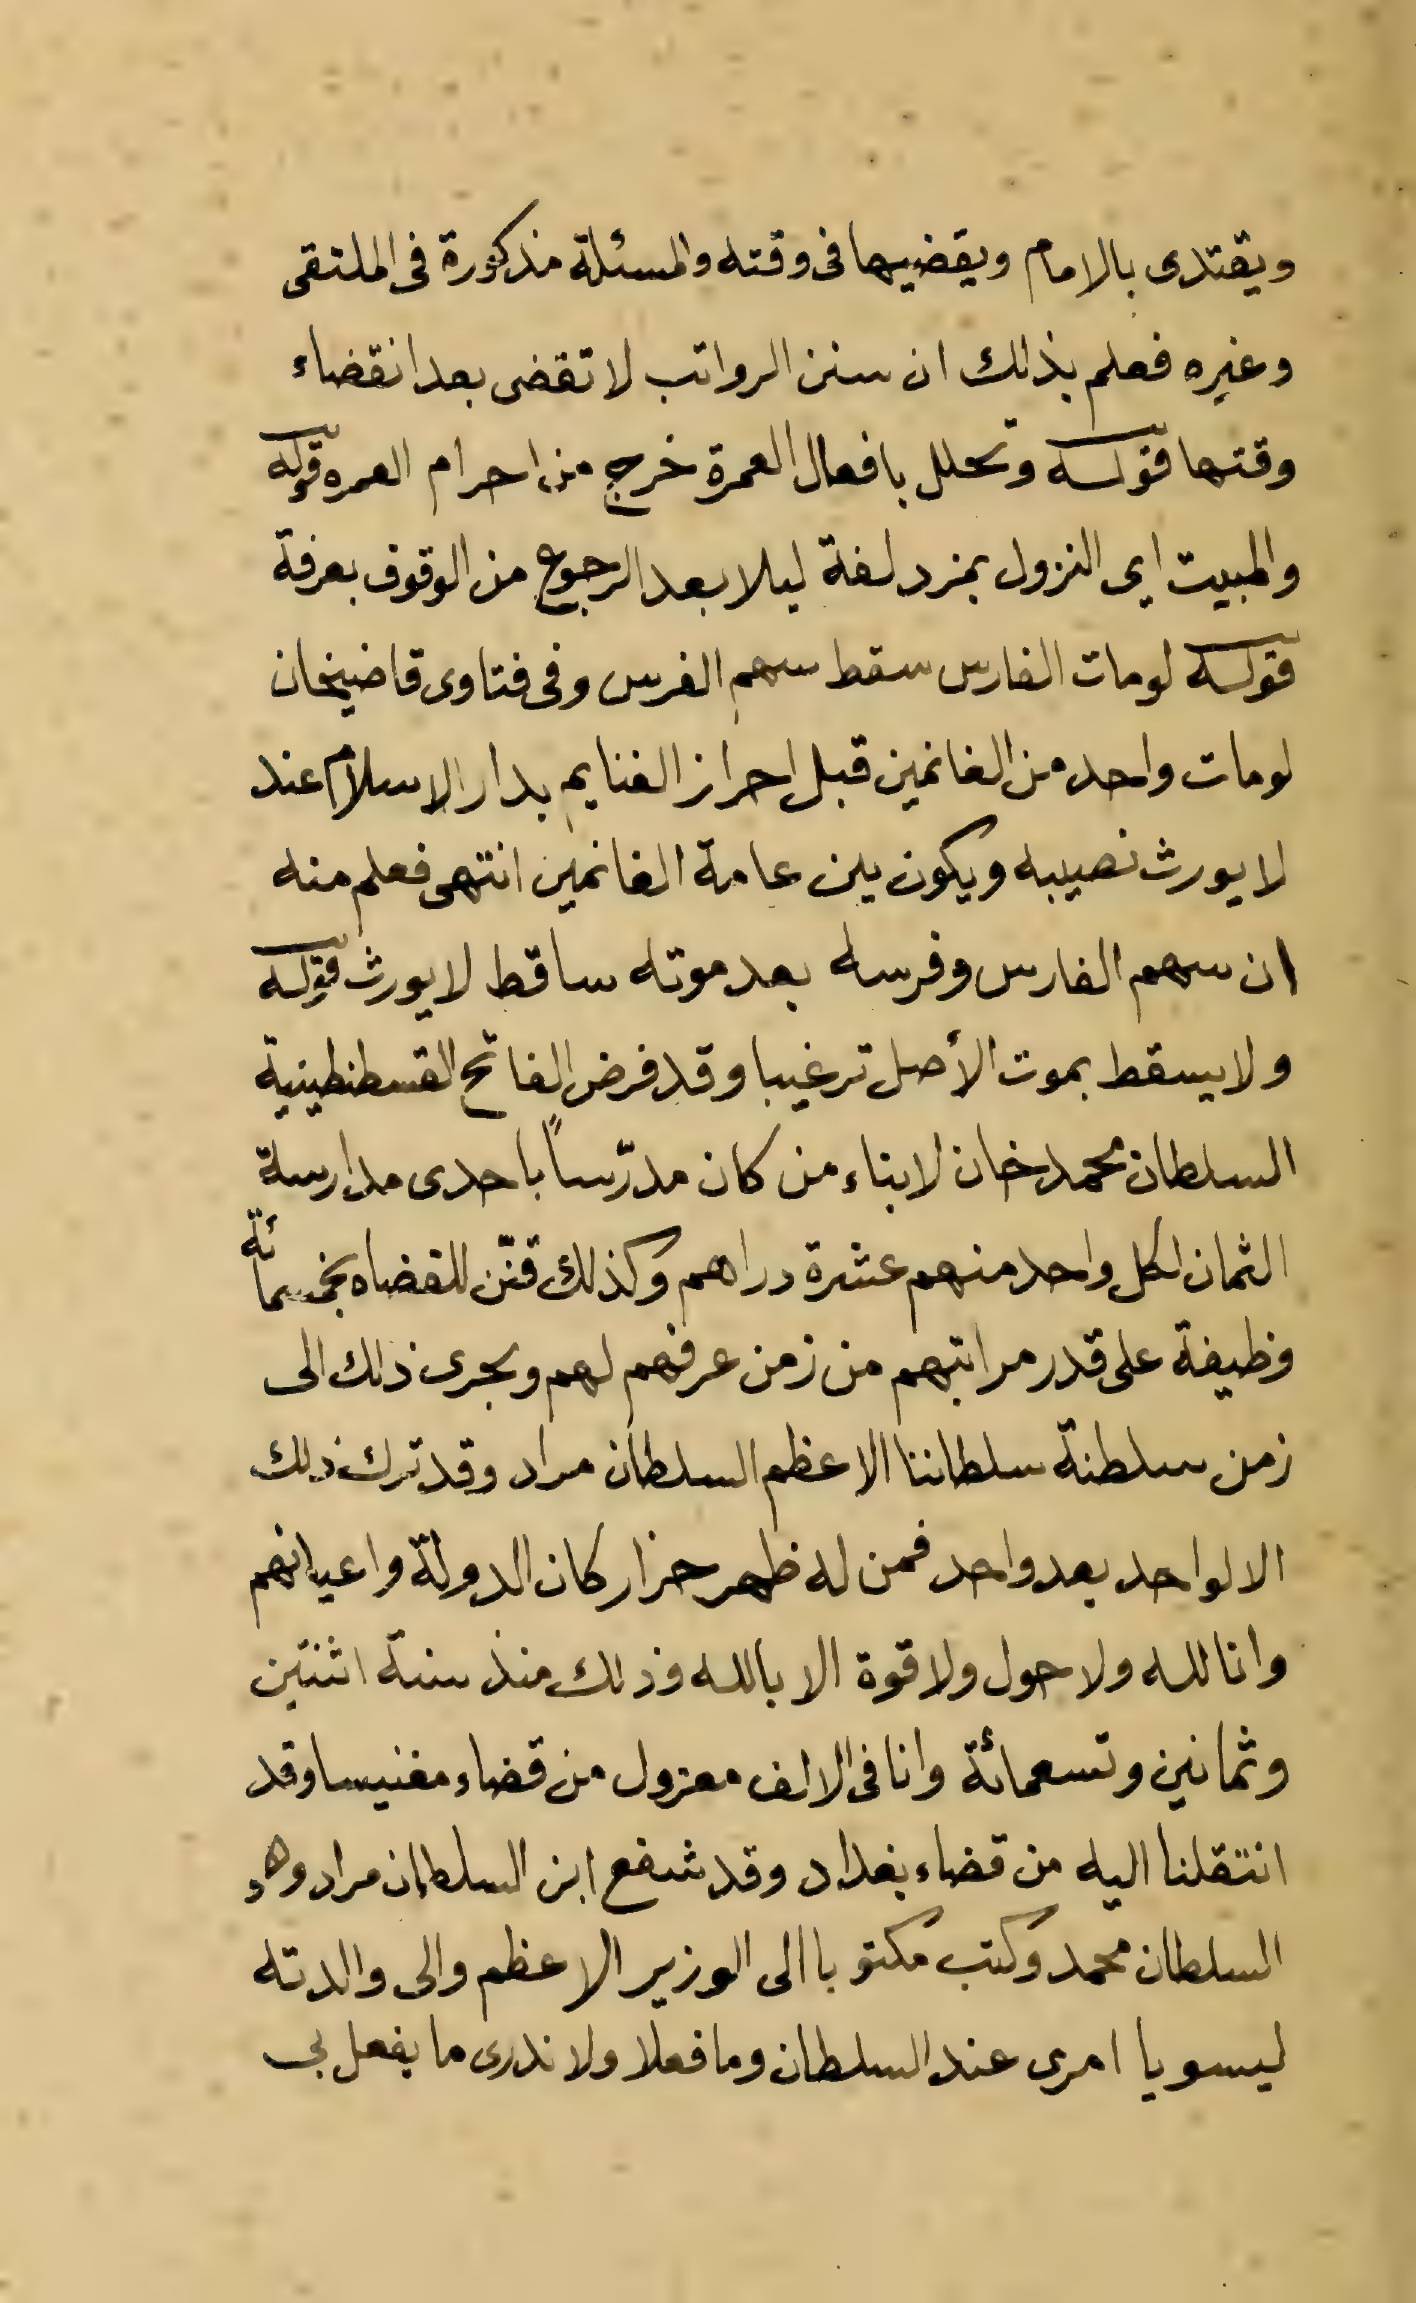 ويقتدى بالامام ويقضيها فى وقته والمسئلة مذكورة فى الملتقى
وغيره فعلم بذلك ان سنن الرواتب لا تقضى بعد انقضاء
وقتها قوله وتحلل بافعال العمرة خرج من احرام العمره قوله
والمبيت اى النزول بمزدلفة ليلا بعد الرجوع من الوقوف بعرفة
قوله لومات الفارس سقط سهم الفرس وفى فتاوى قاضيخان
لومات واحد من الغانمين قبل احراز الغنايم بدار الاسلام عند
لا يورث نصيبه ويكون بين عامة الغانمين انتهى فعلم منه
ان سهم الفارس وفرسه بعد موته ساقط لا يورث قوله
ولا يسقط بموت الأصل ترغيبا وقد فرض الفاتح القسطنطينية
السلطان محمد خان لابناء من كان مدرّساً باحدى مدارسة
الثمان لكل واحد منهم عشرة دراهم وكذلك قنّن للقضاه بخمسمائة
وظيفة على قدر مراتبهم من زمن عرفهم لهم ويجرى ذلك الى
زمن سلطنة سلطاننا الاعظم السلطان مراد وقد ترك ذلك
الا لواحد بعد واحد فمن له ظهر اركان الدولة واعيانهم
وانا لله ولا حول ولا قوة الا بالله وذلك منذ سنة اثنتين
وثمانين وتسعمائة وانا فى الالف معزول من قضاء مغنيسا وقد
انتقلنا اليه من قضاء بغداد وقد شفع ابن السلطان مراد وهو
السلطان محمد وكتب مكتوبا الى الوزير الاعظم والى والدته
ليسويا امرى عند السلطان وما فعلا ولا ندرى ما يفعل بى